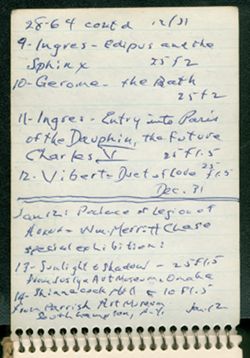 28-64 cont'd 12/31
9-Ingres-Edipus and the
Sphinx 25 f2
10-Gerome- the Bath
25 f2
11-Ingres- Entry into Paris
of the Dauphin, the future
Charles V 25 f1.5
12. Vibert-Duet of Love 25 f1.5
Dec. 31
Jan 12: Palace of Legion of
Honor- Wm. Merritt Chase
special exhibition:
13-Sunlight & Shadow - 25 f1.5
from Joslyn Art Museum, Omaha
14-Shinnecock Hills 10 f1.5
from Parrish Art Museum
Southampton, N.Y. Jan. 12